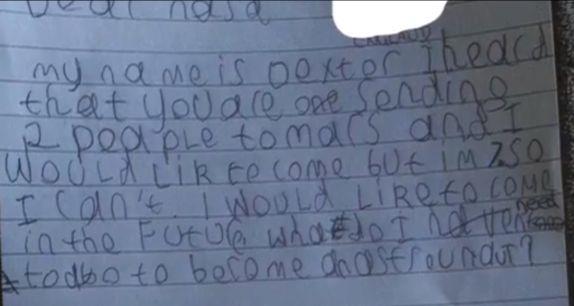 Dear nasa
my name is Dexter I heard
that you are one sending
2 peaple to mars and I
WOULD LiKe to come but im 7 SO
I Can't. I WOULD LIKe to come
in the Future what do I need
to do to become an astrounaut?